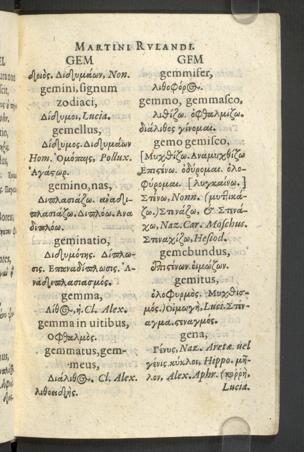 MARTINI RVLANDI.
GEM
διος. Διδυμαίων, Non.
gemini, signum
zodiaci,
Δίδυμοι, Lucia.
gemellus,
Δίδυμος. Διδυμαίων
Hom. Pollux.
gemino, nas,
Διπλασιάζω. ἀναδι-
πλασιάζω. Διπλόω. Ανα
διπλόω.
geminatio,
Διδυμότης. Δίπλω-
σις. Επαναδίπλωσις. Α-
ναδιπλασιασμός.
gemma,
Λίθος, ἡ. Cl. Alex.
gemma in uitibus,
Οφθαλμός.
gemmatus, gem-
meus,
Διάλιθος. Cl. Alex.
GEM
gemmifer,
λιθοφόρος.
gemmo, gemmasco,
λιθίζω. ὀφθαλμίζω.
διάλιθος γίνομαι.
gemo gemisco,
[Μυχθίζω. Αναμυχθίζω
Επιστένω. ὀδύρομαι. ὀλο-
φύρομαι.
Στένω, Nonn.
ζω. Στενάζω, & Στενά-
χω, Naz. Car. Moschus.
Στεναχίζω, Hesiod.
gemebundus,
gemitus,
ὀλοφυρμός. Μυχθισ-
μός.) Οἰμωγή, Luci. Στέν-
αγμα. στεναγμός.
gena,
Γένυς, Naz. Areta. uel
γένυς. κύκλοι. Hippo. μῆ-
λον, Alex. Aphr.
Lucia.